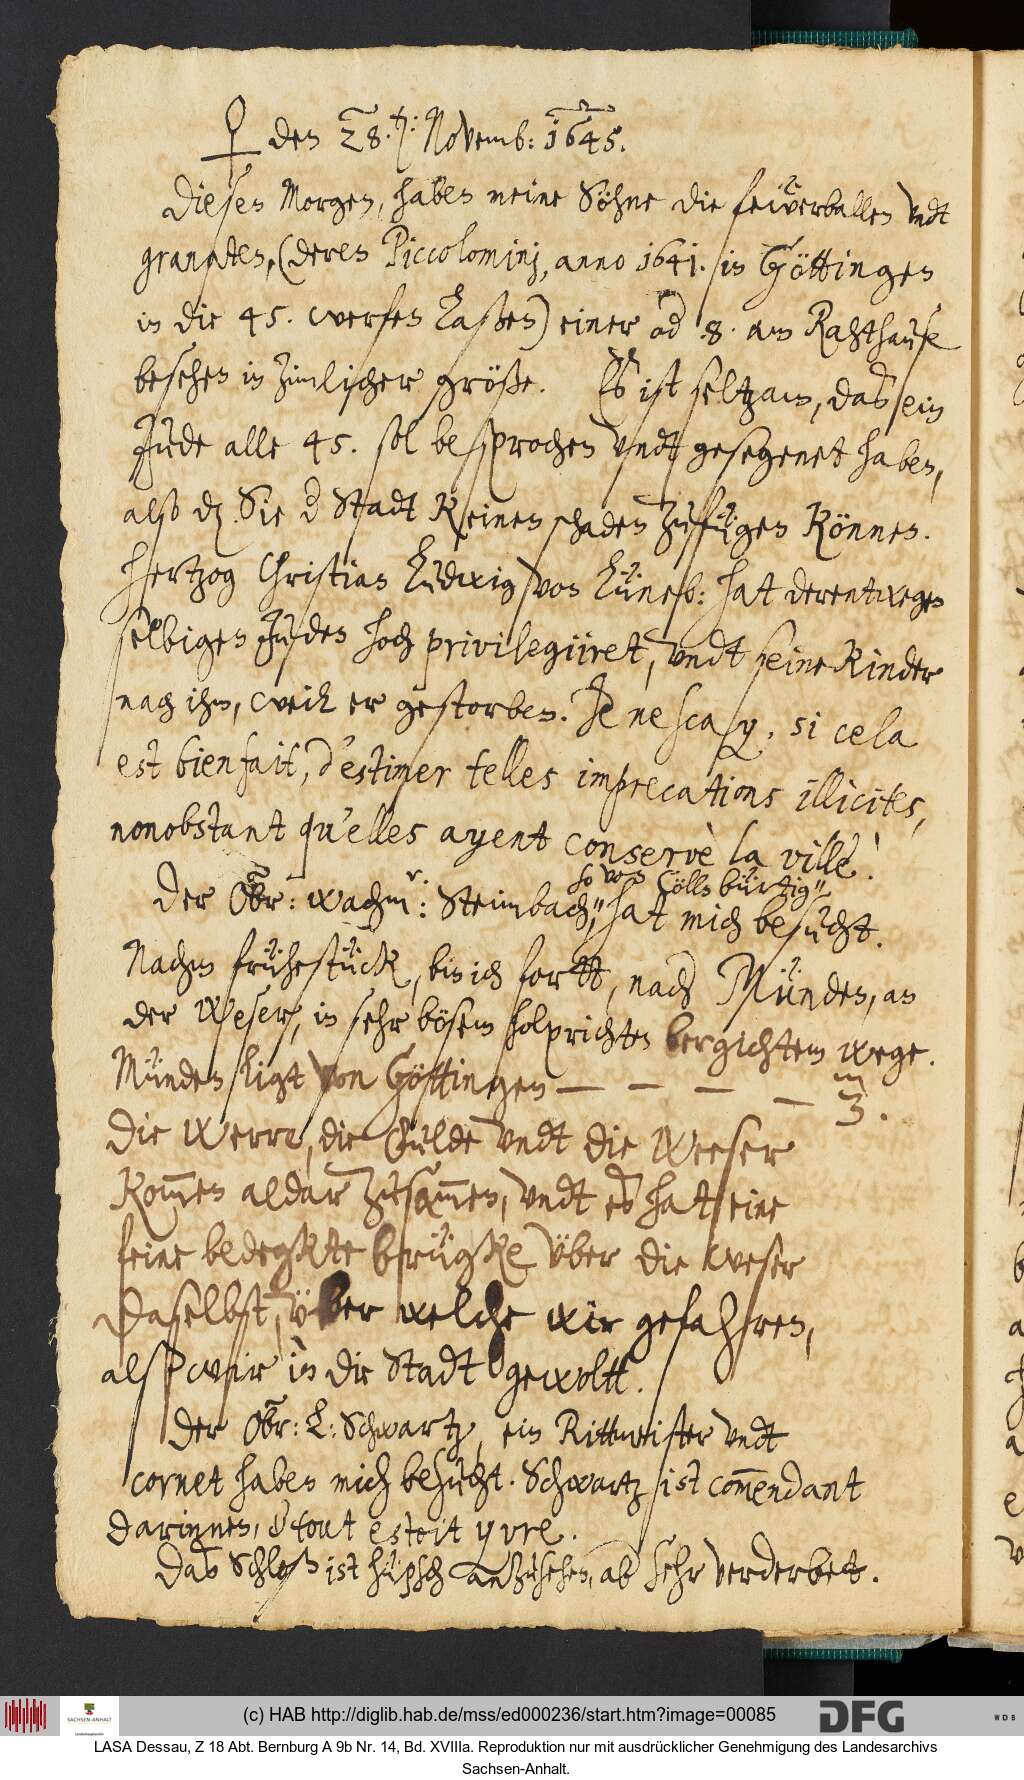 ♀ den 28.: Novemb: 1645.
Diesen Morgen, haben meine Söhne die feẅerballen vndt
granaten, (deren Piccolominj, anno 1641. in Göttingen
in die 45. werfen laßen) einer od 8. am Rahthause
besehen in zimlicher größe. Es ist seltzam, daß ein
Jude alle 45. sol besprochen vndt gesegenet haben,
also dz Sie d Stadt keinen schaden zufügen können.
Hertzog Christian Ludwig von Lüneb: hat derentwegen
selbigen Juden hoch privilegiiret, vndt seine Kinder
nach ihm, weil er gestorben. Je ne scay, si cela
est bien fait, d'estimer telles imprecations illicites,
nonobstant qu'elles ayent conservè la ville!
so von Cölln bürtig"
Der Obr: wachm: Steinbach," hat mich besucht.
Nachm frühestück, bin ich fortt, nach Münden, an
der Weser, in sehr bösem holprichten bergichtem wege.
Münden ligt von Göttingen — — — — 3.
Die Werre, die Fulde vndt die Weeser
kom̅en aldar zusam̅en, vndt es hat eine
feine bedegkte brügke vber die weser
daselbst, vber welche wir gefahren,
alß wir in die Stadt gewoltt.
Der Obr: L: Schwartz, ein Rittmeister vndt
cornet haben mich besucht. Schwartz ist com̅endant
darinnen, & tout estoit yvre.
Das Schloß ist hüpsch anzusehen, ab sehr verderbett.
(c) HAB http://diglib.hab.de/mss/ed000236/start.htm?image=00085
SACHSEN-ANHALT
Landeshauptarchiv
DFG
WDB
LASA Dessau, Z 18 Abt. Bernburg A 9b Nr. 14, Bd. XVIIIa. Reproduktion nur mit ausdrücklicher Genehmigung des Landesarchivs
Sachsen-Anhalt.